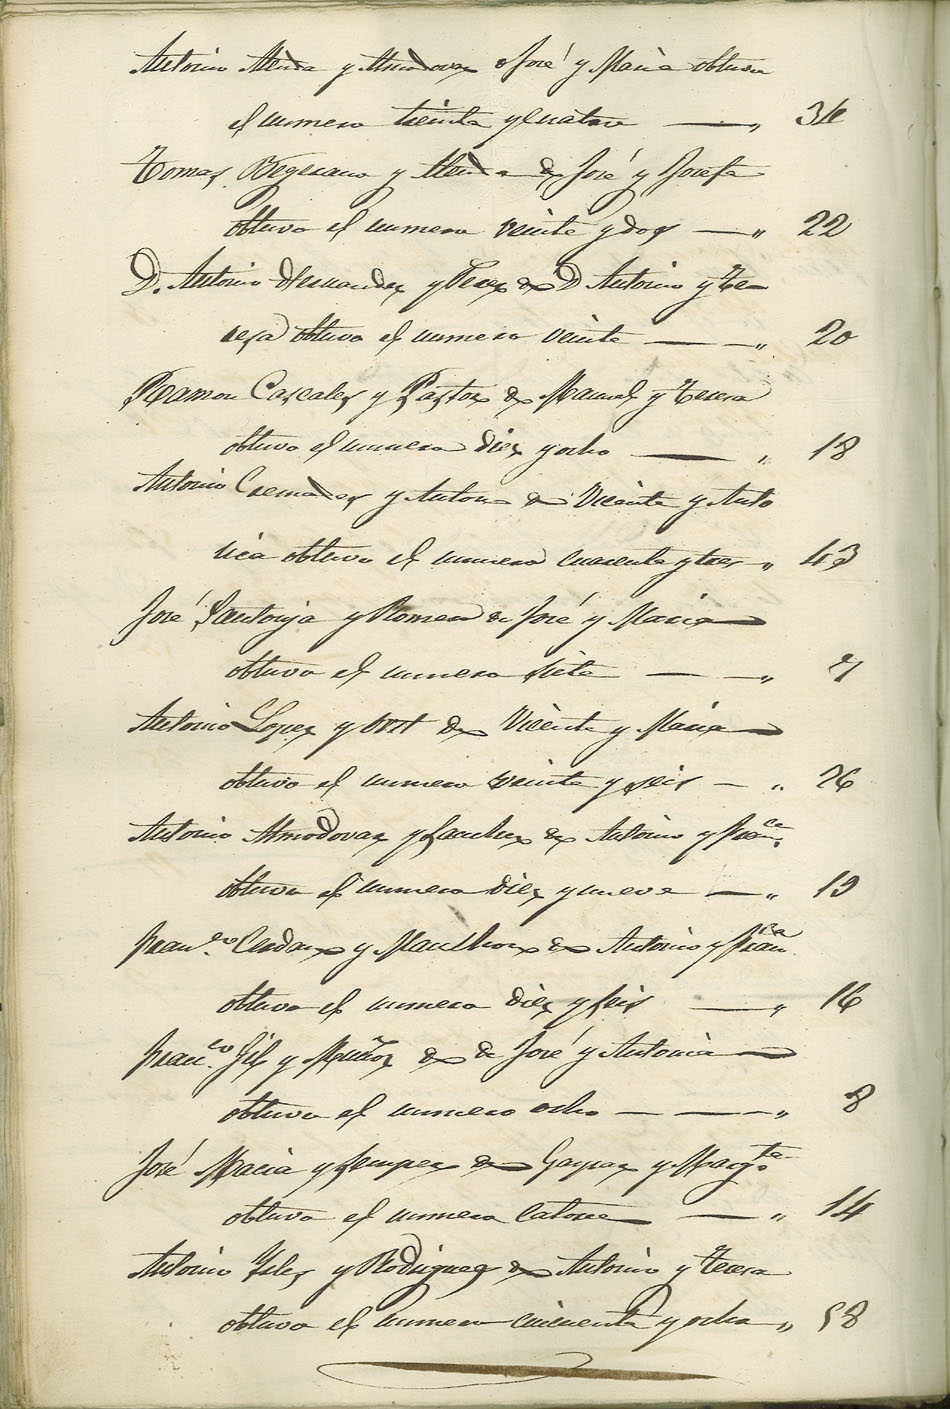 Antonio Alenda y Almodovar de José y Maria obtuvo
el numero treinta y cuatro — „ 34
Tomas Vegerano y Alenda de José y Josefa
obtuvo el numero veinte y dos — „ 22
D. Antonio Hernandez y Perez de D Antonio y Te
resa obtuvo el numero veinte — „ 20
Ramon Cascales y Pastor de Manuel y Teresa
obtuvo el numero diez y ocho — „ 18
Antonio Cremades y Anton de Vicente y Anto
nia obtuvo el numero cuarenta y tres „ 43
José Santonja y Romero de José y Maria
obtuvo el numero siete — „ 7
Antonio Lopez y de Vicente y Maria
obtuvo el numero veinte y seis — „ 26
Antonio Almodovar y Sanchez de Antonio y Fran.ca
obtuvo el numero diez y nueve — „ 19
Fran.co Cerdan y de Antonio y Fran.ca
obtuvo el numero diez y seis — „ 16
Fran.co Gil y Muñoz de de José y Antonia
obtuvo el numero ocho — „ 8
José Macia y Sempere de Gaspar y Marg.ta
obtuvo el numero catorce — „ 14
Antonio Isles y Rodriguez de Antonio y Teresa
obtuvo el numero cincuenta y ocho „ 58